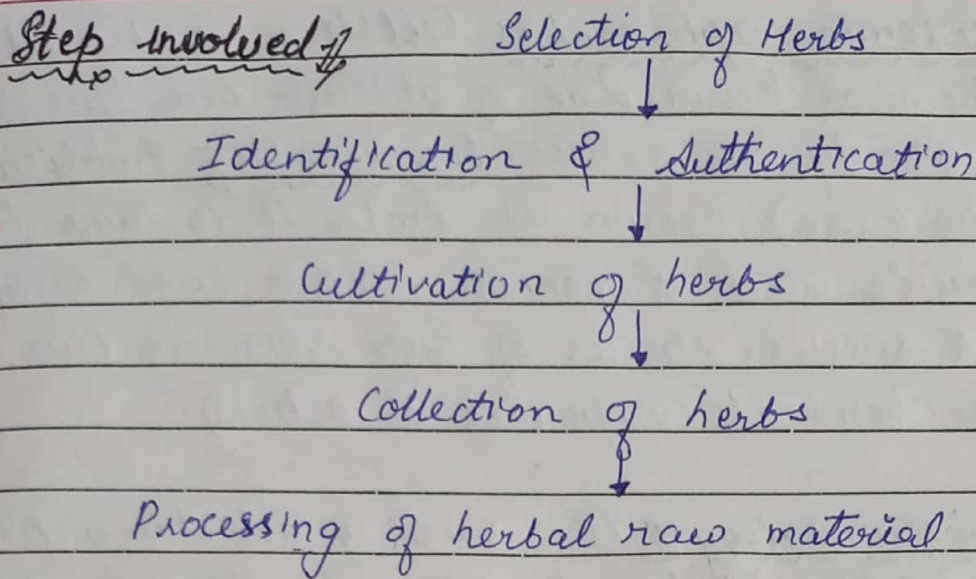 Step involved Selection of Herbs
Identification & Authentication
Cultivation of herbs
Collection of herbs
Processing of herbal raw material